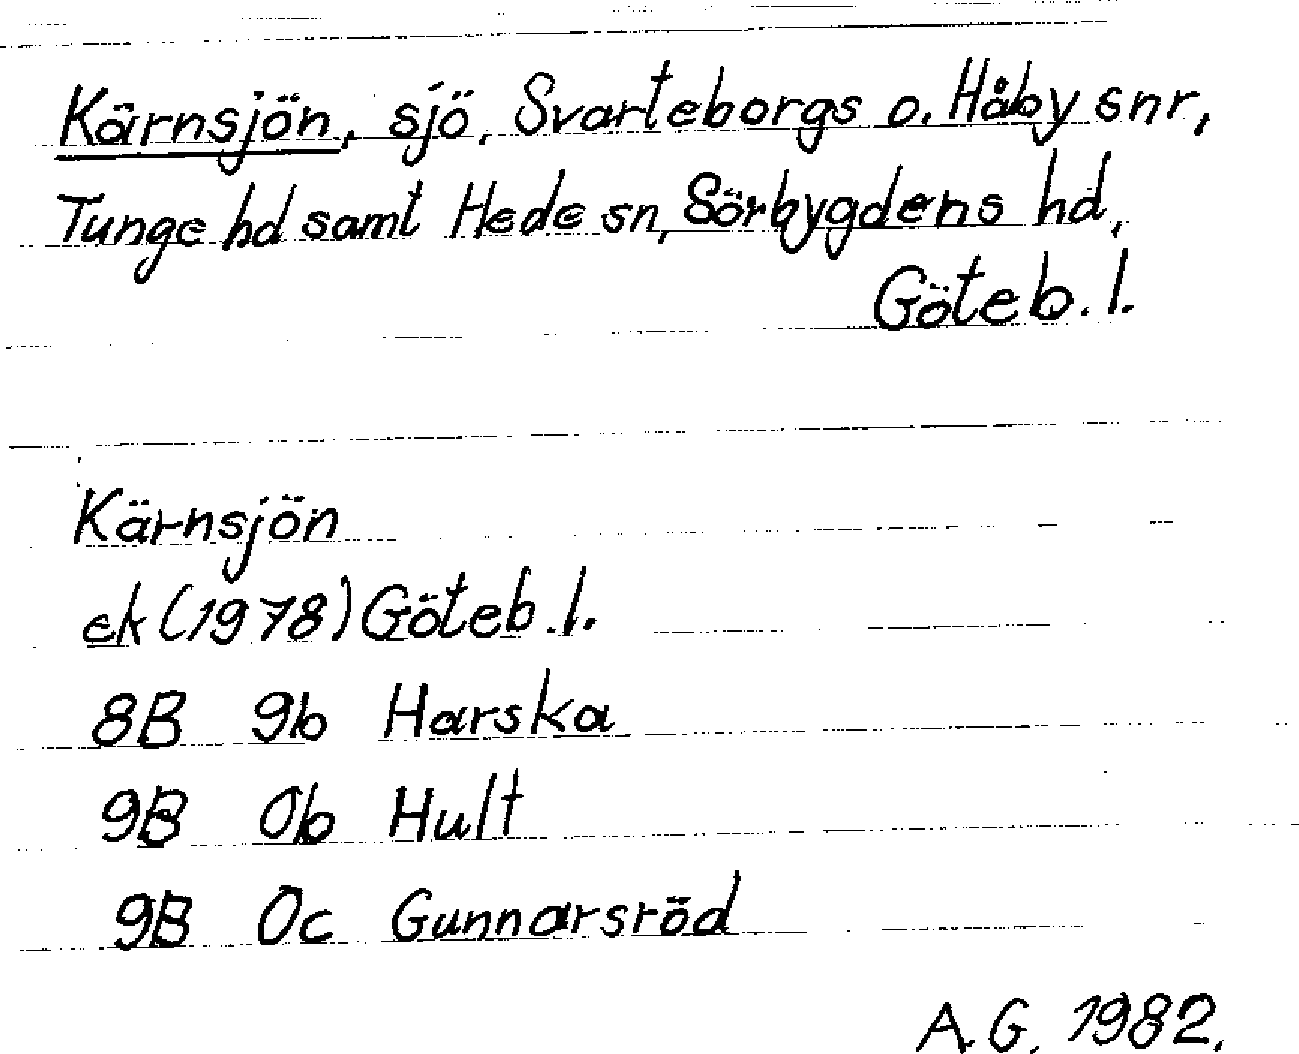 Kärnsjön, sjö, Svarteborgs o. Håby snr,
Tunge hd samt Hede sn, Sörbygdens hd,
Göteb. l.
Kärnsjön
ek (1978) Göteb. l.
8B 9b Harska
9B 0b Hult
9B 0c Gunnarsröd
A.G. 1982.